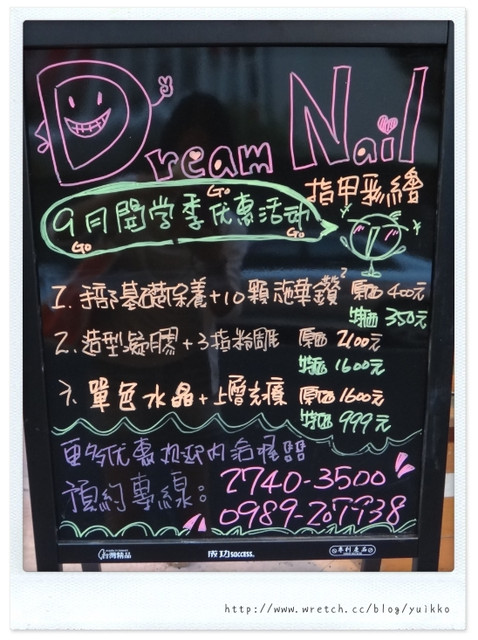 Dream Nail
指甲彩繪
9月開学季优惠活动
Go
Go
Go
1. 手部基礎保養+10顆施華鑽 原価 400元
特価 350元
2. 造型凝膠+3指粉雕 原価 2100元
特価 1600元
3. 單色水晶+上層光療 原価 1600元
特価 999元
更多优惠
內洽
預約專線:
2740-3500
台灣精品
成功 SUCCESS.
專利產品
http://www.wretch.cc/blog/yuikko